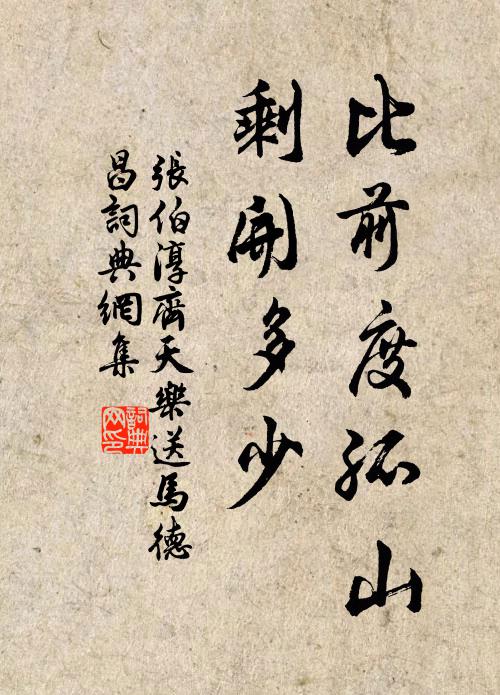 比前度孤山
剩開多少
張伯淳齊天樂送馬德
昌詞典網集
詞典
网印